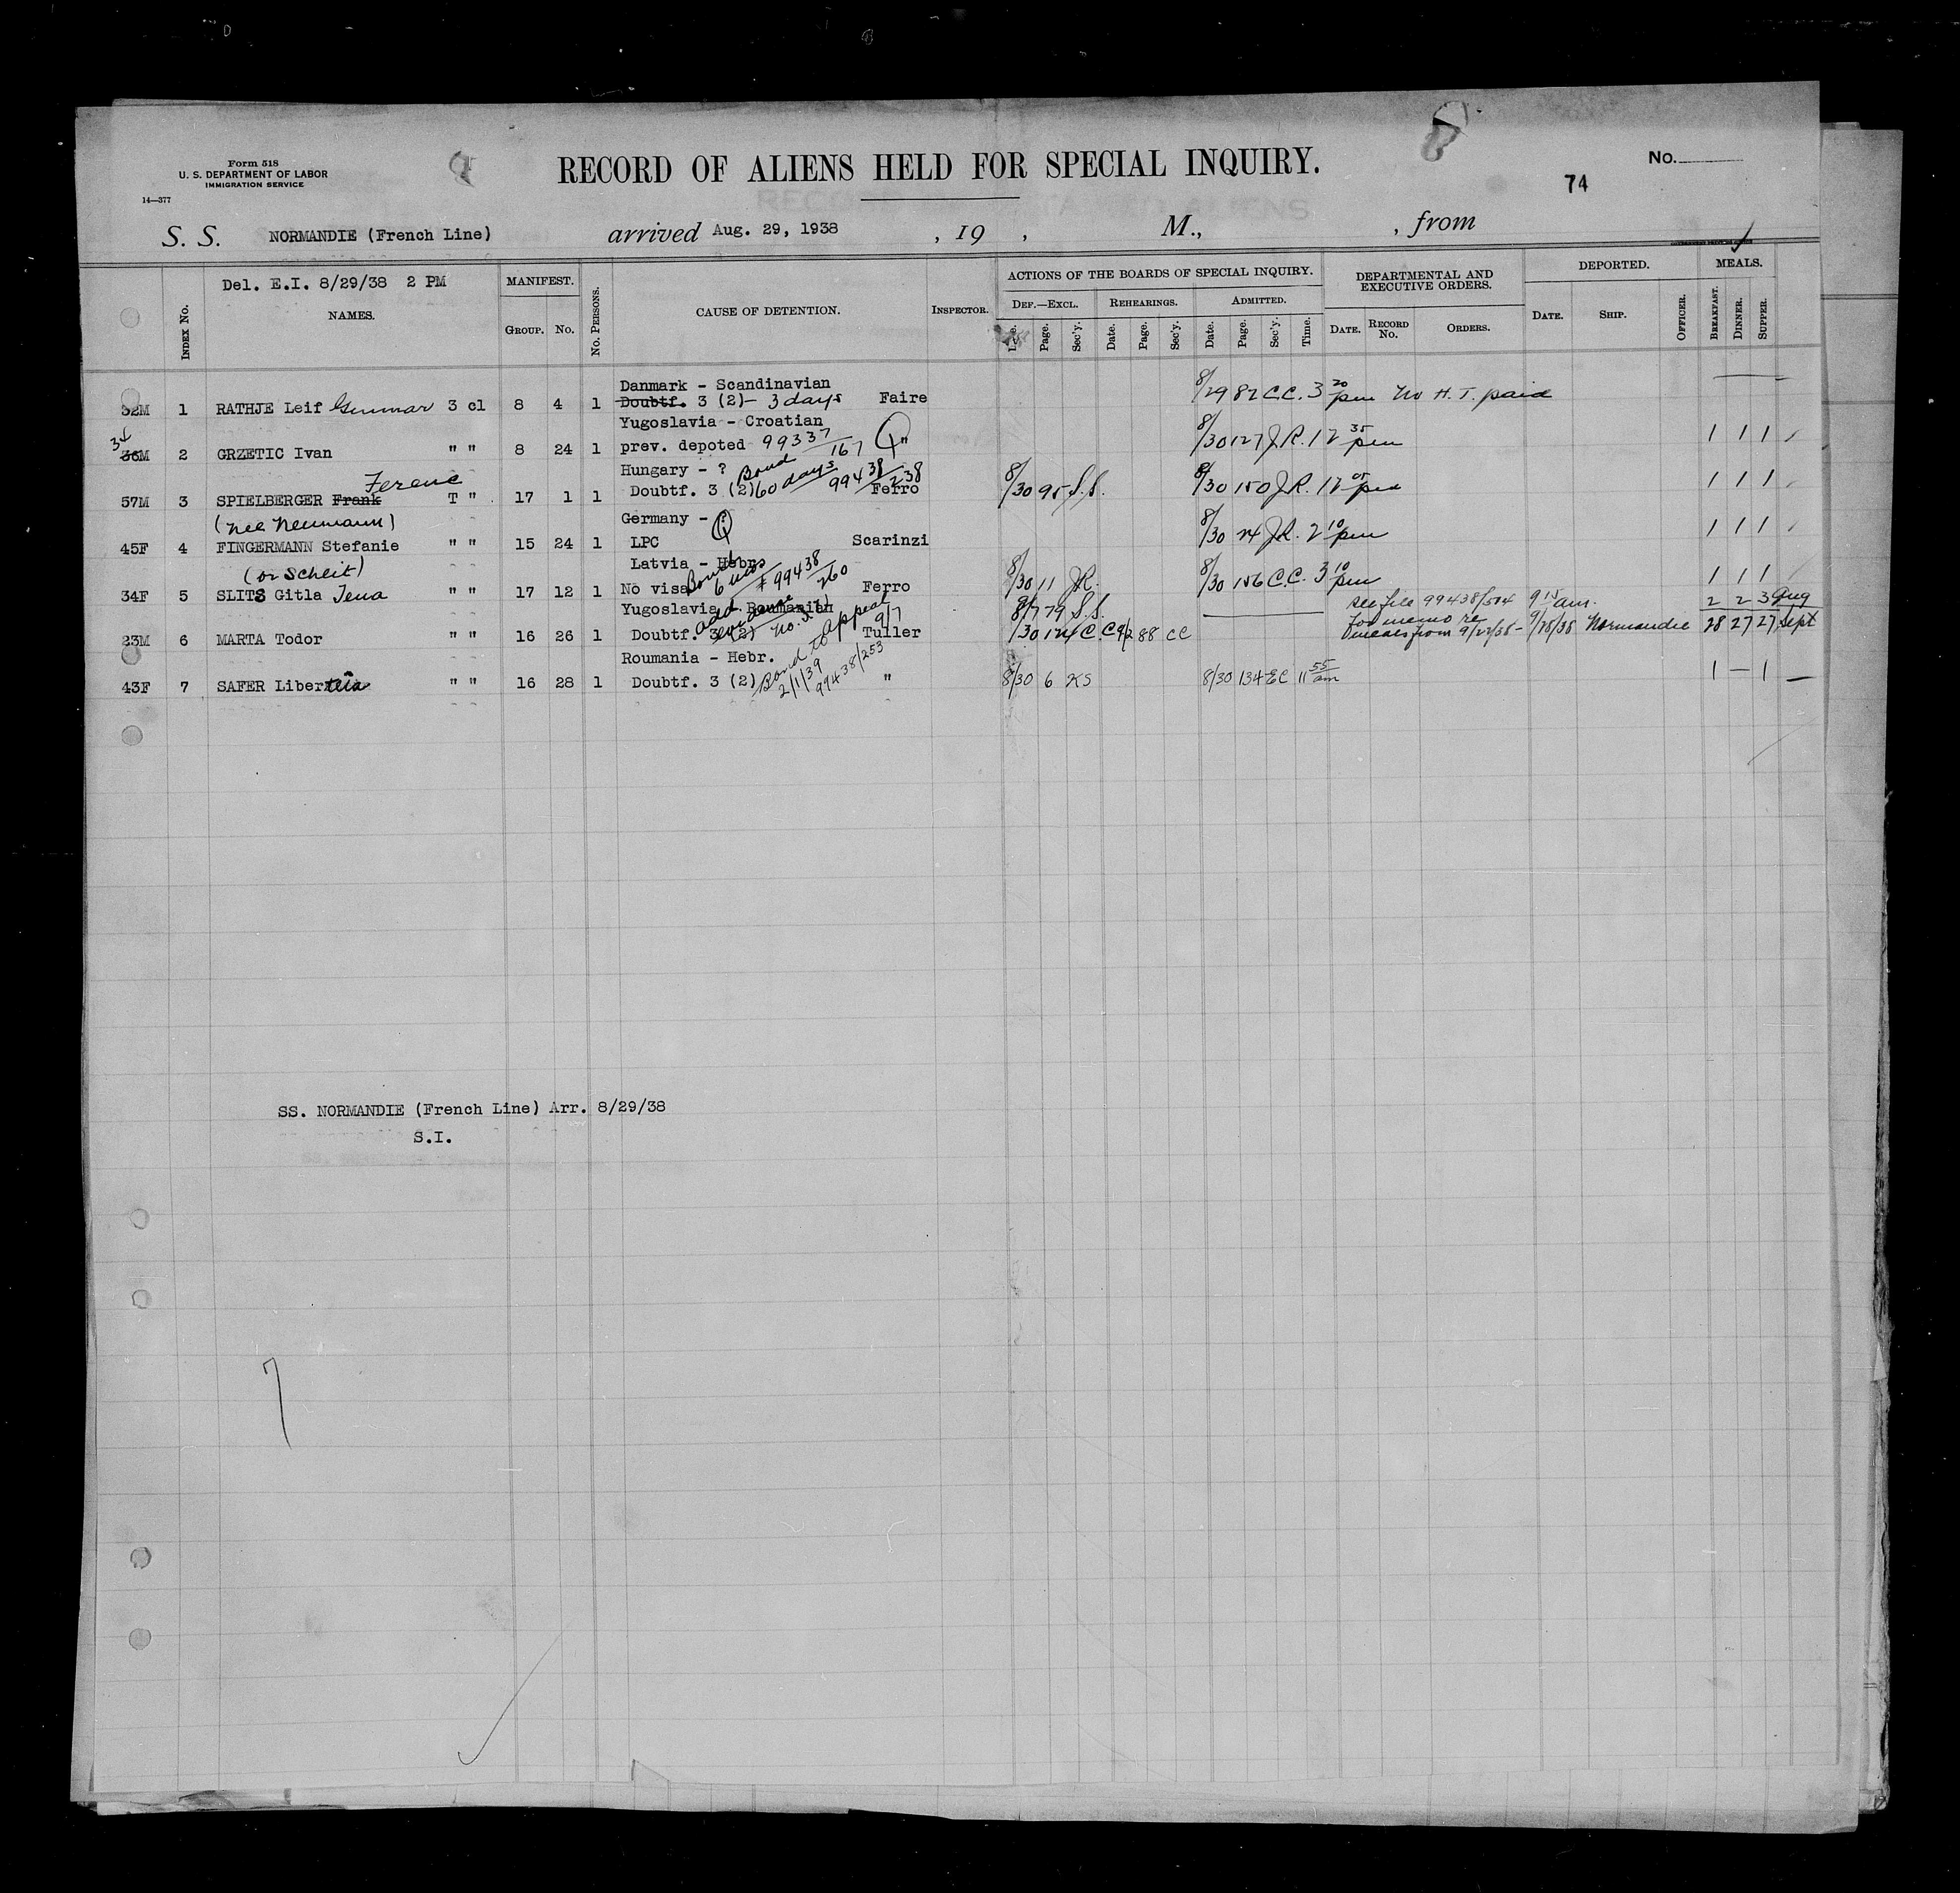 Form 518
U. S. DEPARTMENT OF LABOR
IMMIGRATION SERVICE
14—377
RECORD OF ALIENS HELD FOR SPECIAL INQUIRY.
No.
74
S. S. NORMANDIE (French Line) arrived Aug. 29, 1938 , 19 , M., , from
Del. E.I. 8/29/38 2 PM
INDEX No. NAMES. MANIFEST. GROUP. No. No. PERSONS. CAUSE OF DETENTION. INSPECTOR.
ACTIONS OF THE BOARDS OF SPECIAL INQUIRY.
DEF.—EXCL. REHEARINGS. ADMITTED.
Page. Sec'y. Date. Page. Sec'y. Date. Page. Sec'y. Time.
DEPARTMENTAL AND EXECUTIVE ORDERS.
DATE. RECORD No. ORDERS.
DEPORTED.
DATE. SHIP. OFFICER.
MEALS.
BREAKFAST. DINNER. SUPPER.
Danmark - Scandinavian
32M 1 RATHJE Leif Gunnar 3 cl 8 4 1 Doubtf. 3 (2) - 3 days Faire 8/29 82 C.C. 3 20 pm No H. T. paid
Yugoslavia - Croatian
34 36M 2 GRZETIC Ivan " " 8 24 1 prev. depoted 99337/167 " 8/30 127 J.R. 12 35 pm 1 1 1
Hungary - ? Bond
57M 3 SPIELBERGER Frank Ferenc T " 17 1 1 Doubtf. 3 (2) 60 days 99438/238 Ferro 8/30 95 S.S. 8/30 150 J.R. 12 05 pm 1 1 1
(nee Neumann) Germany - ?
45F 4 FINGERMANN Stefanie " " 15 24 1 LPC Scarinzi 8/30 24 J.R. 2 10 pm 1 1 1
(or Scheit) Latvia - Hebr.
34F 5 SLITS Gitla Tena " " 17 12 1 No visa Bond 6 mos # 99438/260 Ferro 8/30 11 J.R. 8/30 156 C.C. 3 10 pm 1 1 1
Yugoslavia - Roumanian add. evidence 9/7 79 S.S. see file 99438/504 9 15 am. 2 2 3 Aug
23M 6 MARTA Todor " " 16 26 1 Doubtf. 3 (2) Appeal 9/7 Tuller 8/30 124 C.C. 9/2 88 CC for memo re meals from 9/22/38 - 9/28/38 Normandie 28 27 27 Sept
Roumania - Hebr.
43F 7 SAFER Libertaia " " 16 28 1 Doubtf. 3 (2) Bond to 2/1/39 99438/253 " 8/30 6 KS 8/30 134 EC 11 55 am 1 — 1
SS. NORMANDIE (French Line) Arr. 8/29/38
S.I.
7